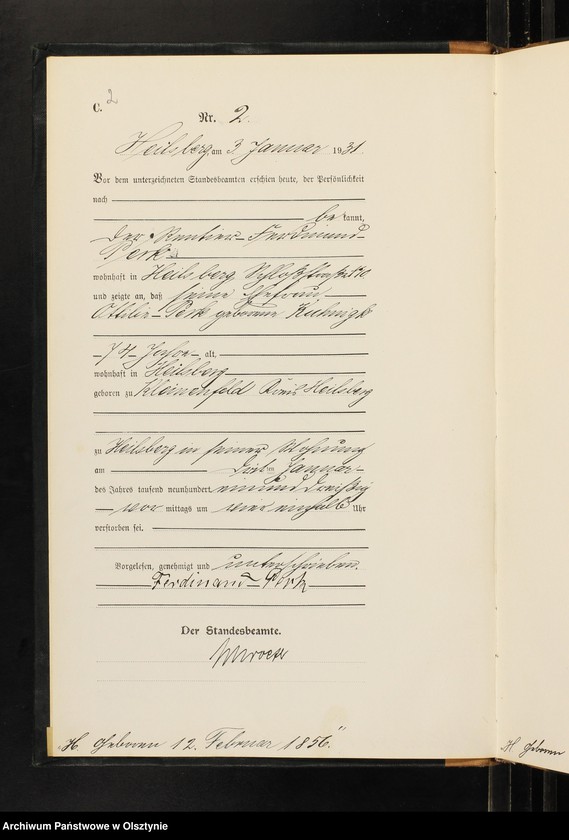 C. 2
Nr. 2
Heilsberg, am 3 Januar 1931
Vor dem unterzeichneten Standesbeamten erschien heute, der Persönlichkeit
nach
be kannt,
der Rentier Ferdinand
Perk
wohnhaft in Heilsberg, Schloßstraße
und zeigte an, daß seine Ehefrau
Ottilie Perk geborene
74 Jahre alt,
wohnhaft in Heilsberg
geboren zu Kleinenfeld Kreis Heilsberg
zu Heilsberg in seiner Wohnung
am ten Januar
des Jahres tausend neunhundert einunddreißig
vor mittags um vier einhalb Uhr
verstorben sei.
Vorgelesen, genehmigt und unterschrieben.
Ferdinand Perk
Der Standesbeamte.
„H. Geboren 12. Februar 1856."
H. Geboren
Archiwum Państwowe w Olsztynie